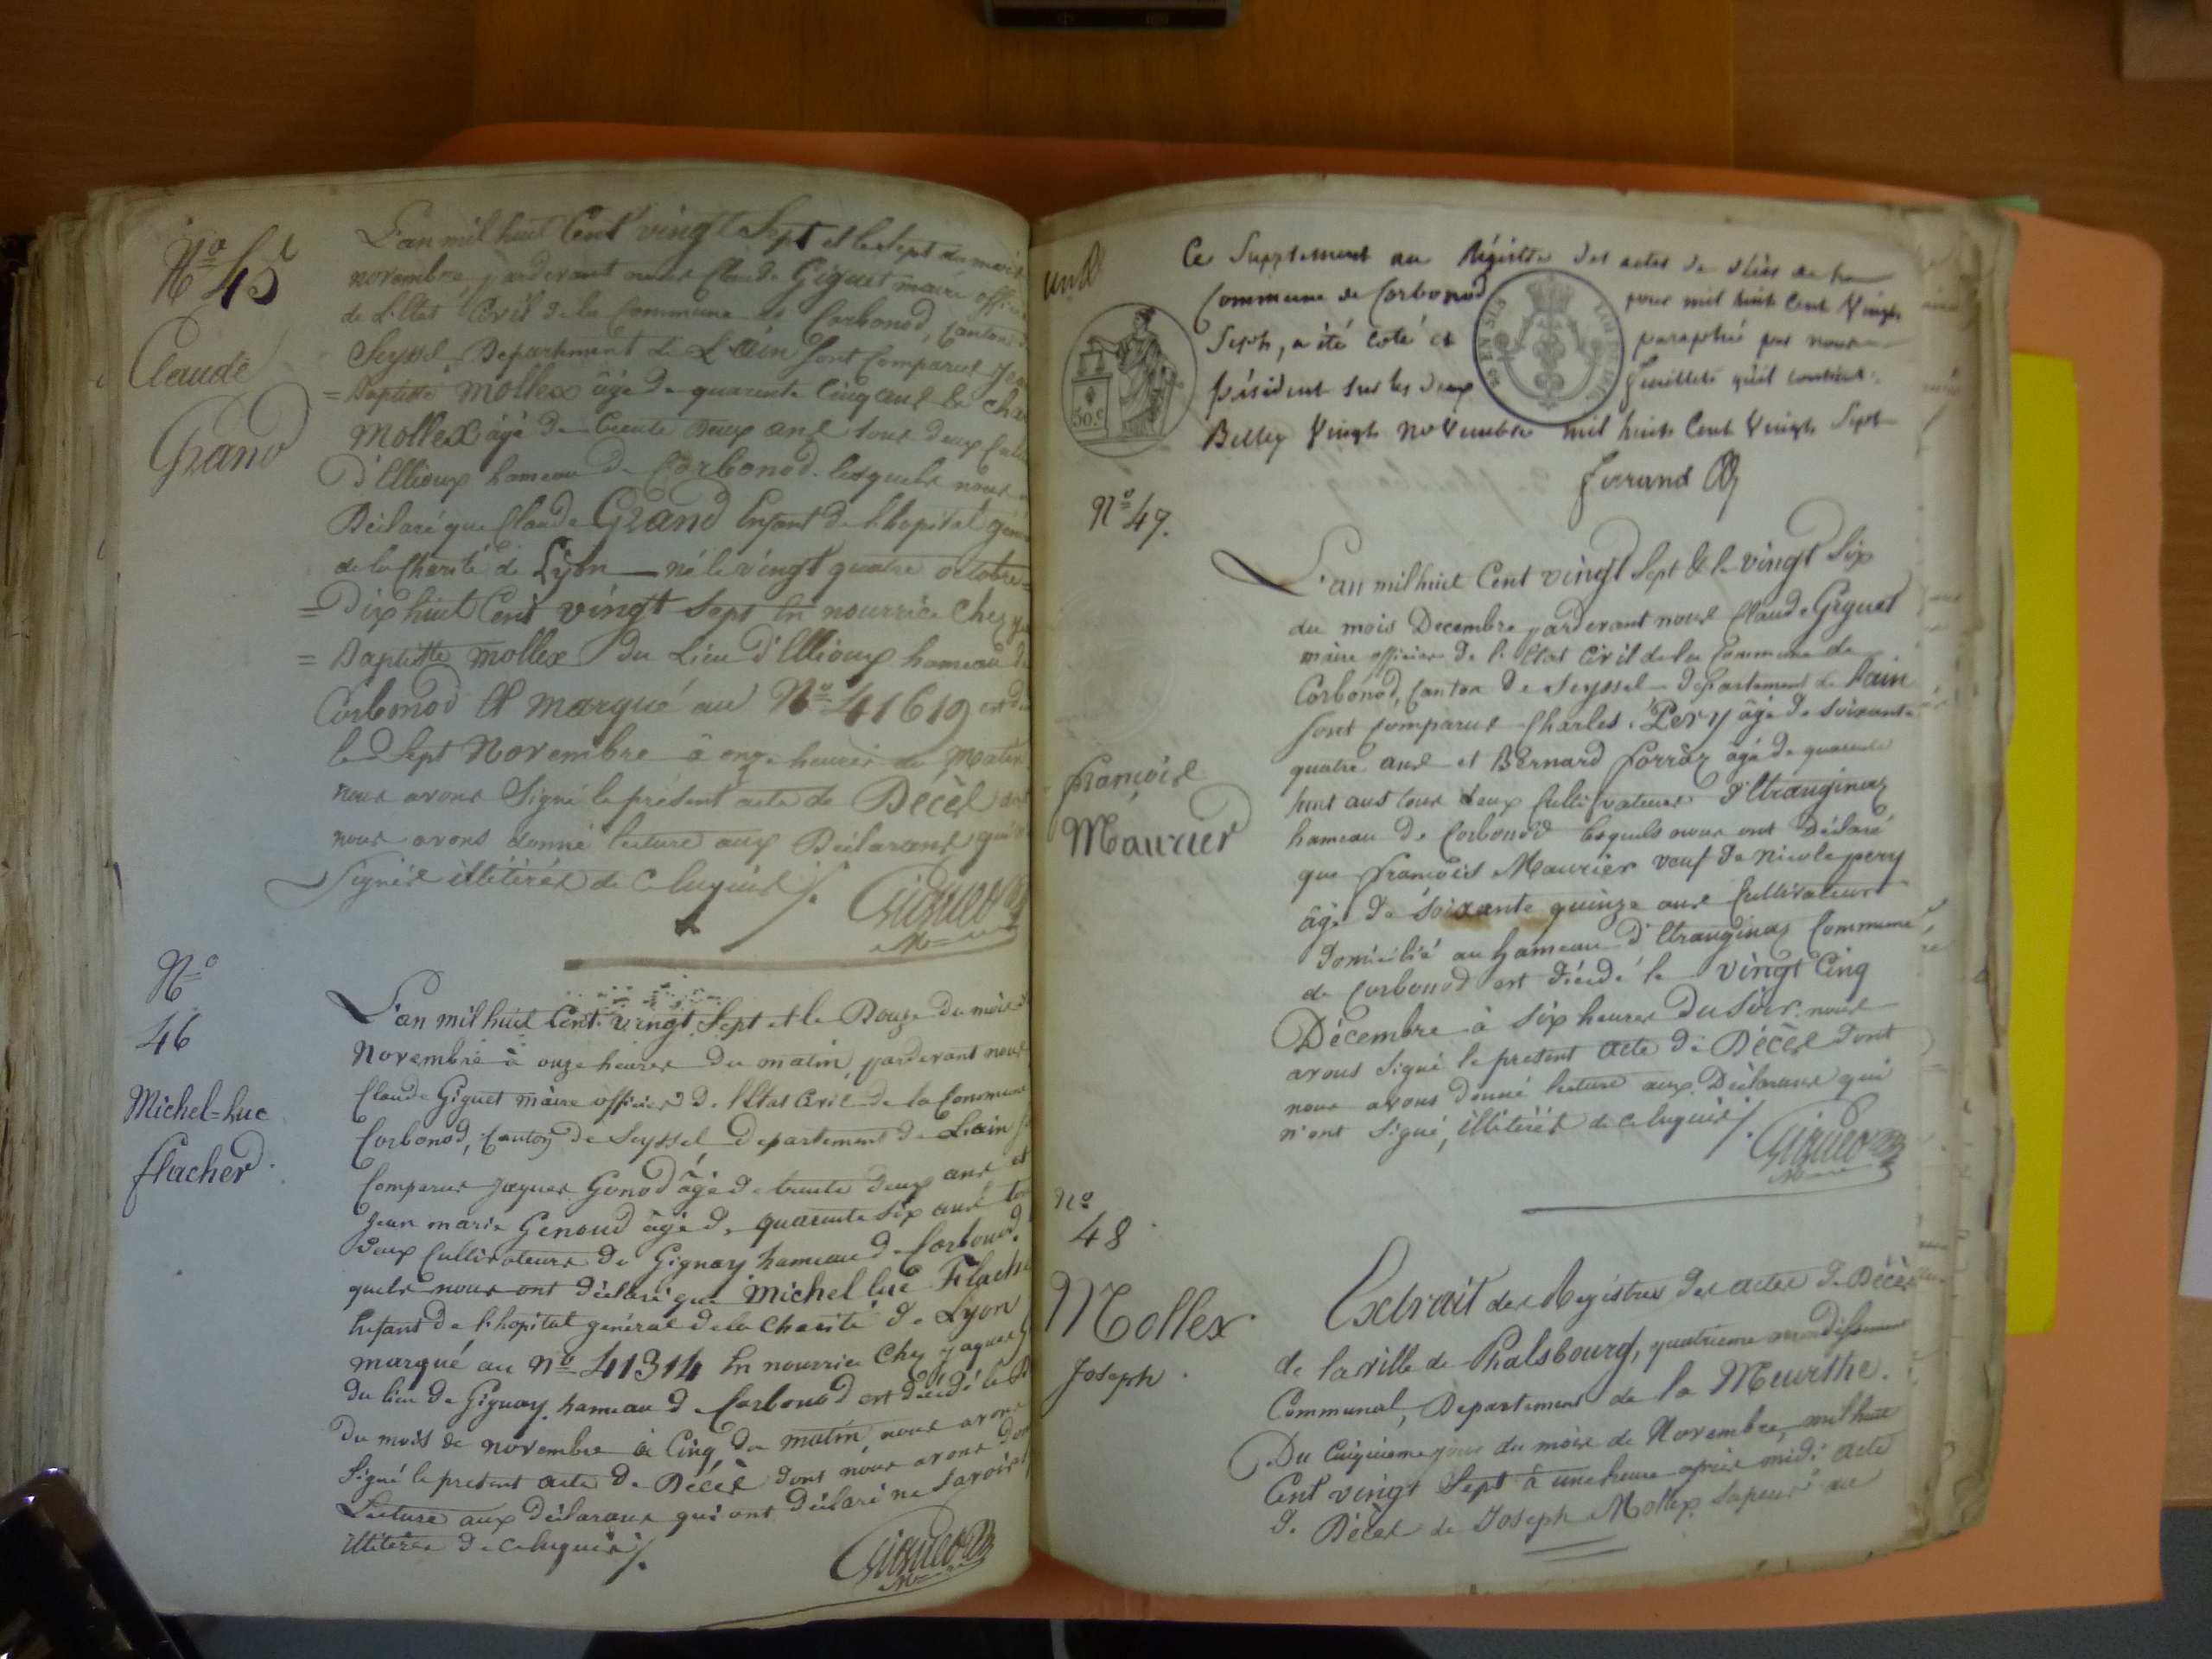 No 45
Claude
Grand
L'an mil huit Cent vingt Sept et le Sept du mois
novembre, pardevant nous Claude Giguet maire offici
de l'Etat Civil de la Commune de Corbonod, Canton d
Seyssel, Departement de L'ain sont Comparus Jean
= Baptiste Mollex âgé de quarante Cinq ans & Char
Mollex âgé de trente deux ans tous deux Culti
d'Ellioux hameau de Corbonod. lesquels nous o
Déclaré que Claude Grand Enfant de l'hopital géné
de la Charité de Lyon né le vingt quatre octobre
= Dix huit Cent vingt Sept En nourrice Chez Jea
= Baptiste mollex Du Lieu d'Ellioux hameau de
Corbonod & marqué au No 41619 est dé
le Sept Novembre à onze heures du Matin
nous avons Signé le présent acte de Décès dont
nous avons donné lecture aux Déclarans qui n
Signés illitérés de ce enquis /.
Giguet
No
46
Michel=Luc
flacher
L'an mil huit Cent vingt Sept et le Douze Du mois d
Novembre à onze heures du matin, pardevant nous
Claude Giguet maire officier de l'Etat Civil de la Commune
Corbonod, Canton de Seyssel Departement de Lain so
Comparus Jaques Gonod âgé de trente deux ans et
Jean marie Genoud âgé de quarante Six ans tou
deux Cultivateurs de Gignay hameau de Corbonod.
quels nous ont déclaré que Michel luc Flache
Enfant de l'hopital général de la Charité de Lyon
marqué au No 41314 En nourrice Chez Jaques G
du lieu de Gignay hameau de Corbonod est décédé le D
Du mois de novembre à Cinq du matin, nous avons
Signé le présent acte de Décès dont nous avons don
Lecture aux déclarans qui ont déclaré ne Savoir
illitérés de ce enquis /.
Giguet
un
Ce Supplement au Régistre des actes de décès de la
Commune de Corbonod pour mil huit Cent Vingt
Sept, a été coté et paraphé par nous
président sur les deux feuillets qu'il contient.
Belley Vingt novembre mil huit Cent Vingt Sept
ferrand
30.c
No 47.
françois
Maurier
L'an mil huit Cent vingt Sept & le vingt Six
du mois Decembre pardevant nous Claude Giguet
maire officier de l'Etat Civil de la Commune de
Corbonod, Canton de Seyssel departement de Lain
sont Comparus Charles Pery âgé de soixante
quatre ans et Bernard forraz agé de quarante
huit ans tous deux Cultivateurs d'Etranginaz
hameau de Corbonod lesquels nous ont Déclaré
que françois Maurier veuf de Nicole pery
âgé de soixante quinze ans Cultivateur
Domicilié au hameau d'Etranginaz Commune
de Corbonod est décédé le vingt Cinq
Décembre à Six heures du Soir. nous
avons Signé le present acte de Décès Dont
nous avons donné lecture aux Déclarans qui
n'ont Signé, illitérés de ce enquis /.
Giguet
No
48
Mollex
Joseph
Extrait des Registres des actes de Décès
de la ville de Phalsbourg, quatrieme arrondissement
Communal, Departement de la Meurthe.
Du Cinquieme jour du mois de Novembre, mil huit
Cent vingt Sept à une heure après midi acte
de Décès de Joseph Mollex Sapeur au